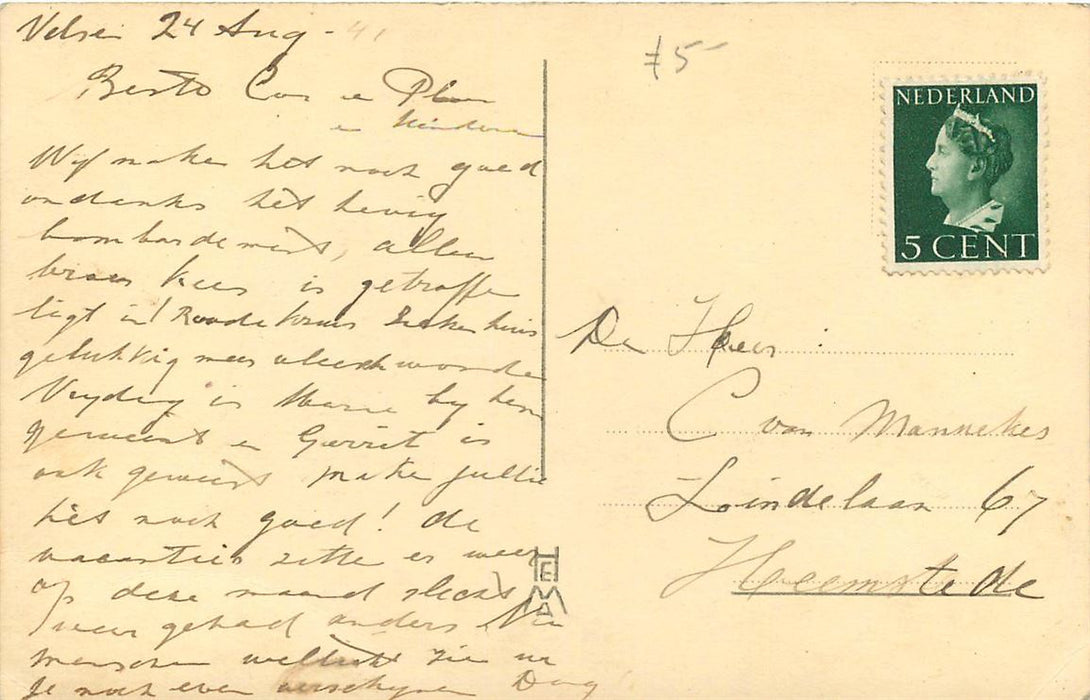 Velsen 24 Aug - 41
Beste Cor en
en kinderen
Wij maken het noch goed
ondanks het hevig
bombardement, alleen
broer Kees is getroffe
ligt in! Roode kruis Zieken huis
gelukkig meer vleeschwonde
Vrijdag is Marie bij hem
geweest en Gerrit is
ook geweest maken jullie
het noch goed! de
vacanties zitte er weer
op deze maand slecht
weer gehad anders
menschen wellicht zien we
je noch even verschijnen Dag
75-
NEDERLAND
5 CENT
De Heer :
C van Mannekes
Lindelaan 67
Heemstede
HEMA